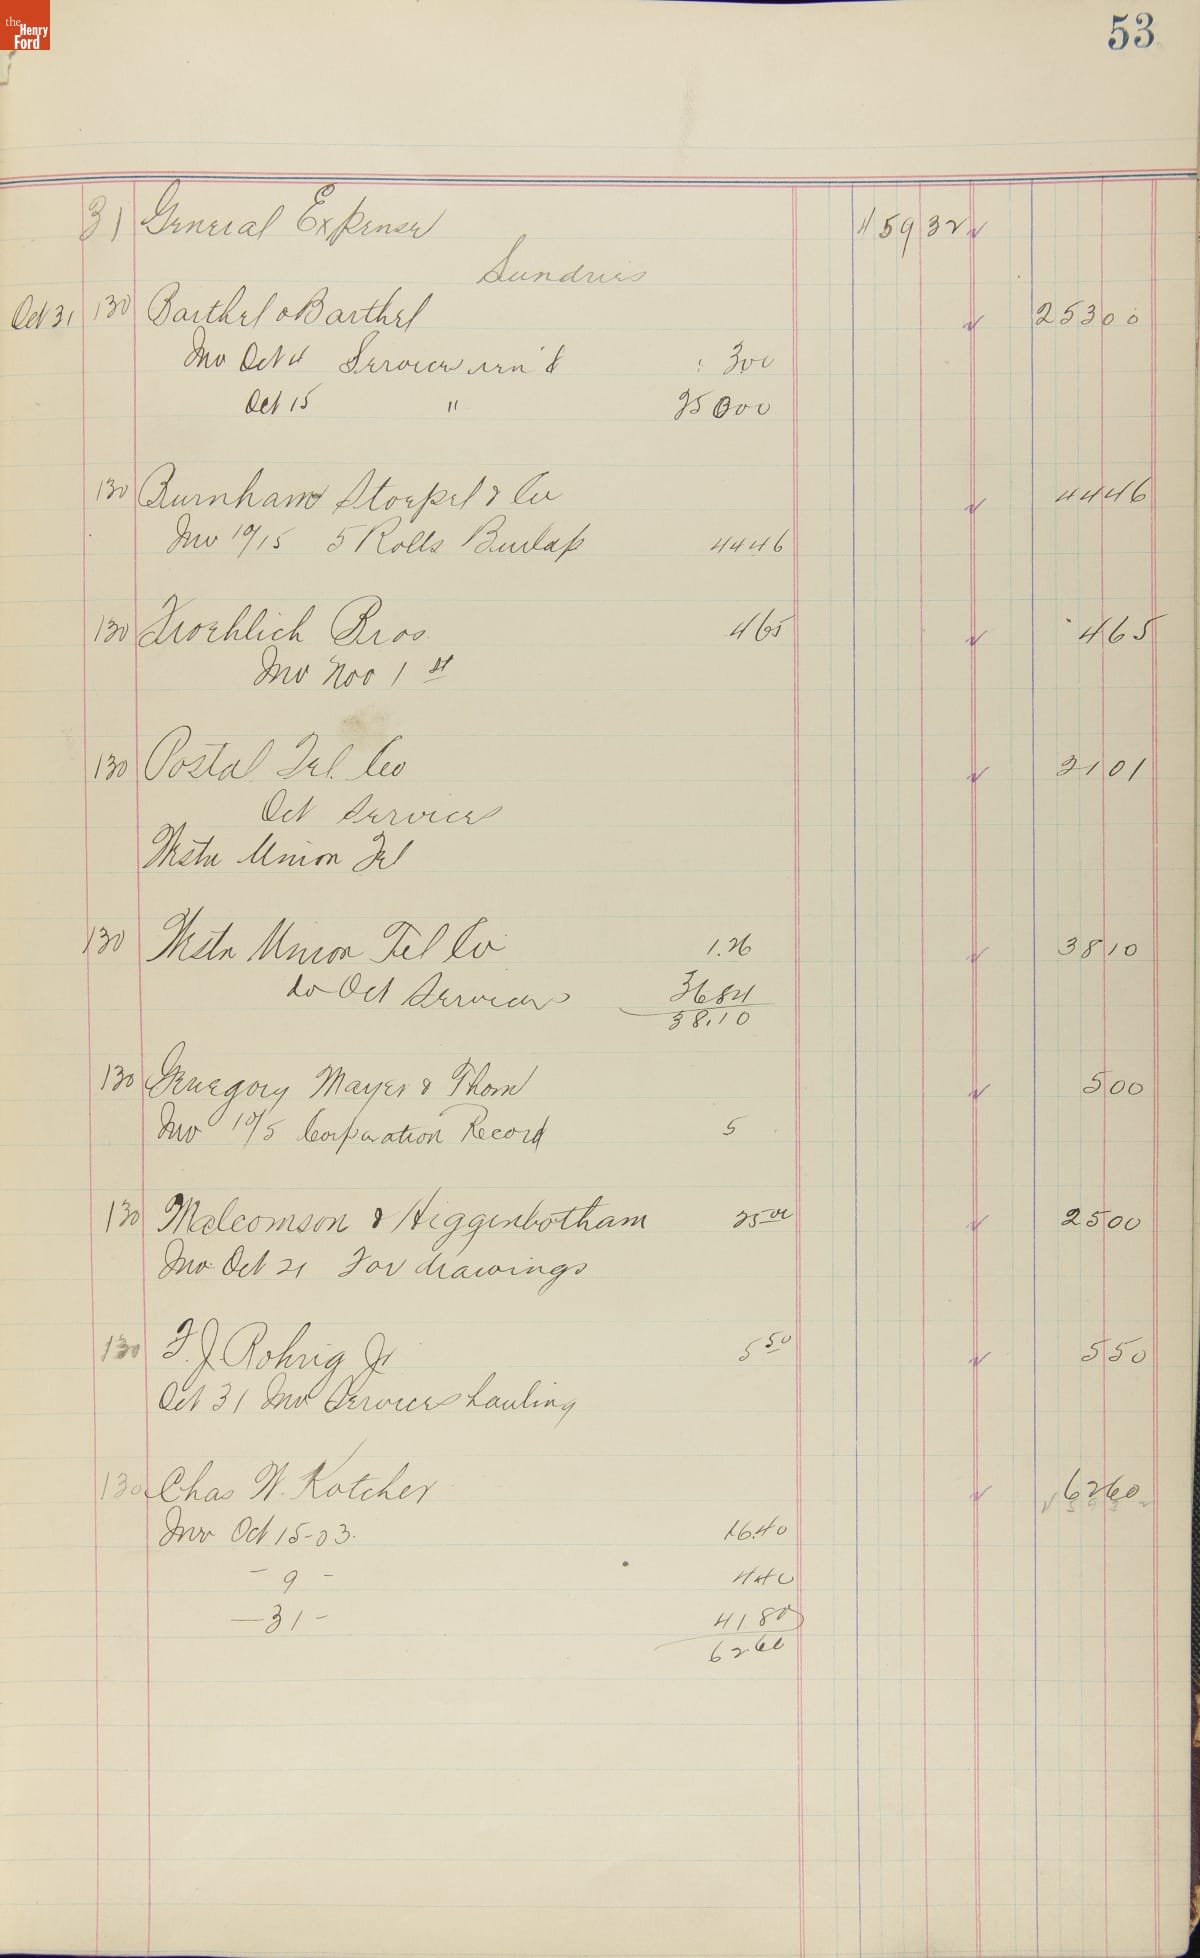 the Henry Ford
53
31 General Expense 459 32
Sundries
Oct 31 130 Barthel & Barthel 253 00
Inv Oct 4 Services ren'd 3 00
Oct 15 " 250 00
130 Burnham Stoepel & Co 44 46
Inv 10/15 5 Rolls Burlap 44 46
130 Froehlich Bros. 4 65 4 65
Inv Nov 1st
130 Postal Tel. Co 21 01
Oct Services
Westn Union Tel
130 Westn Union Tel Co 1.26 38 10
do Oct Services 36 84
38.10
130 Greegory Mayer & Thom 5 00
Inv 10/5 Corporation Record 5
130 Malcomson & Higgenbotham 25 00 25 00
Inv Oct 21 For drawings
130 F. J. Rohrig Jr 5 50 5 50
Oct 31 Inv Services hauling
130 Chas W. Kotcher 62 60
Inv Oct 15-03. 16.40
- 9 - 4 40
- 31 - 41 80
62.60